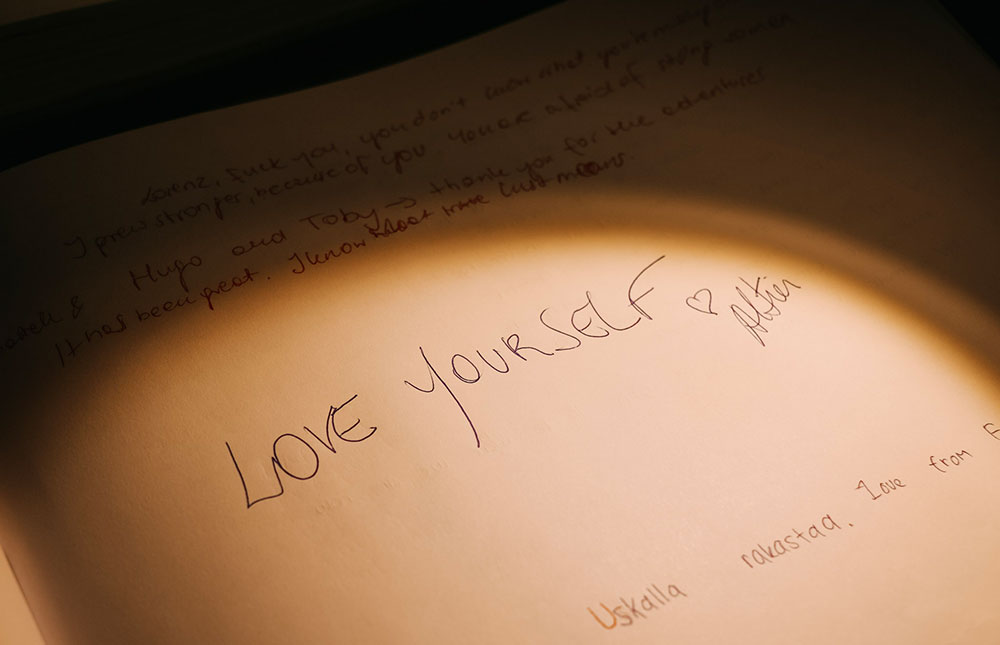 Lorenz, fuck you, you don't know what you're missing
I grew stronger, because of you. You are afraid of strong women
& Hugo and Toby → thank you for the adventures
It has been great. I know what true love means.
LOVE YOURSELF ♡
Uskalla rakastaa. Love from